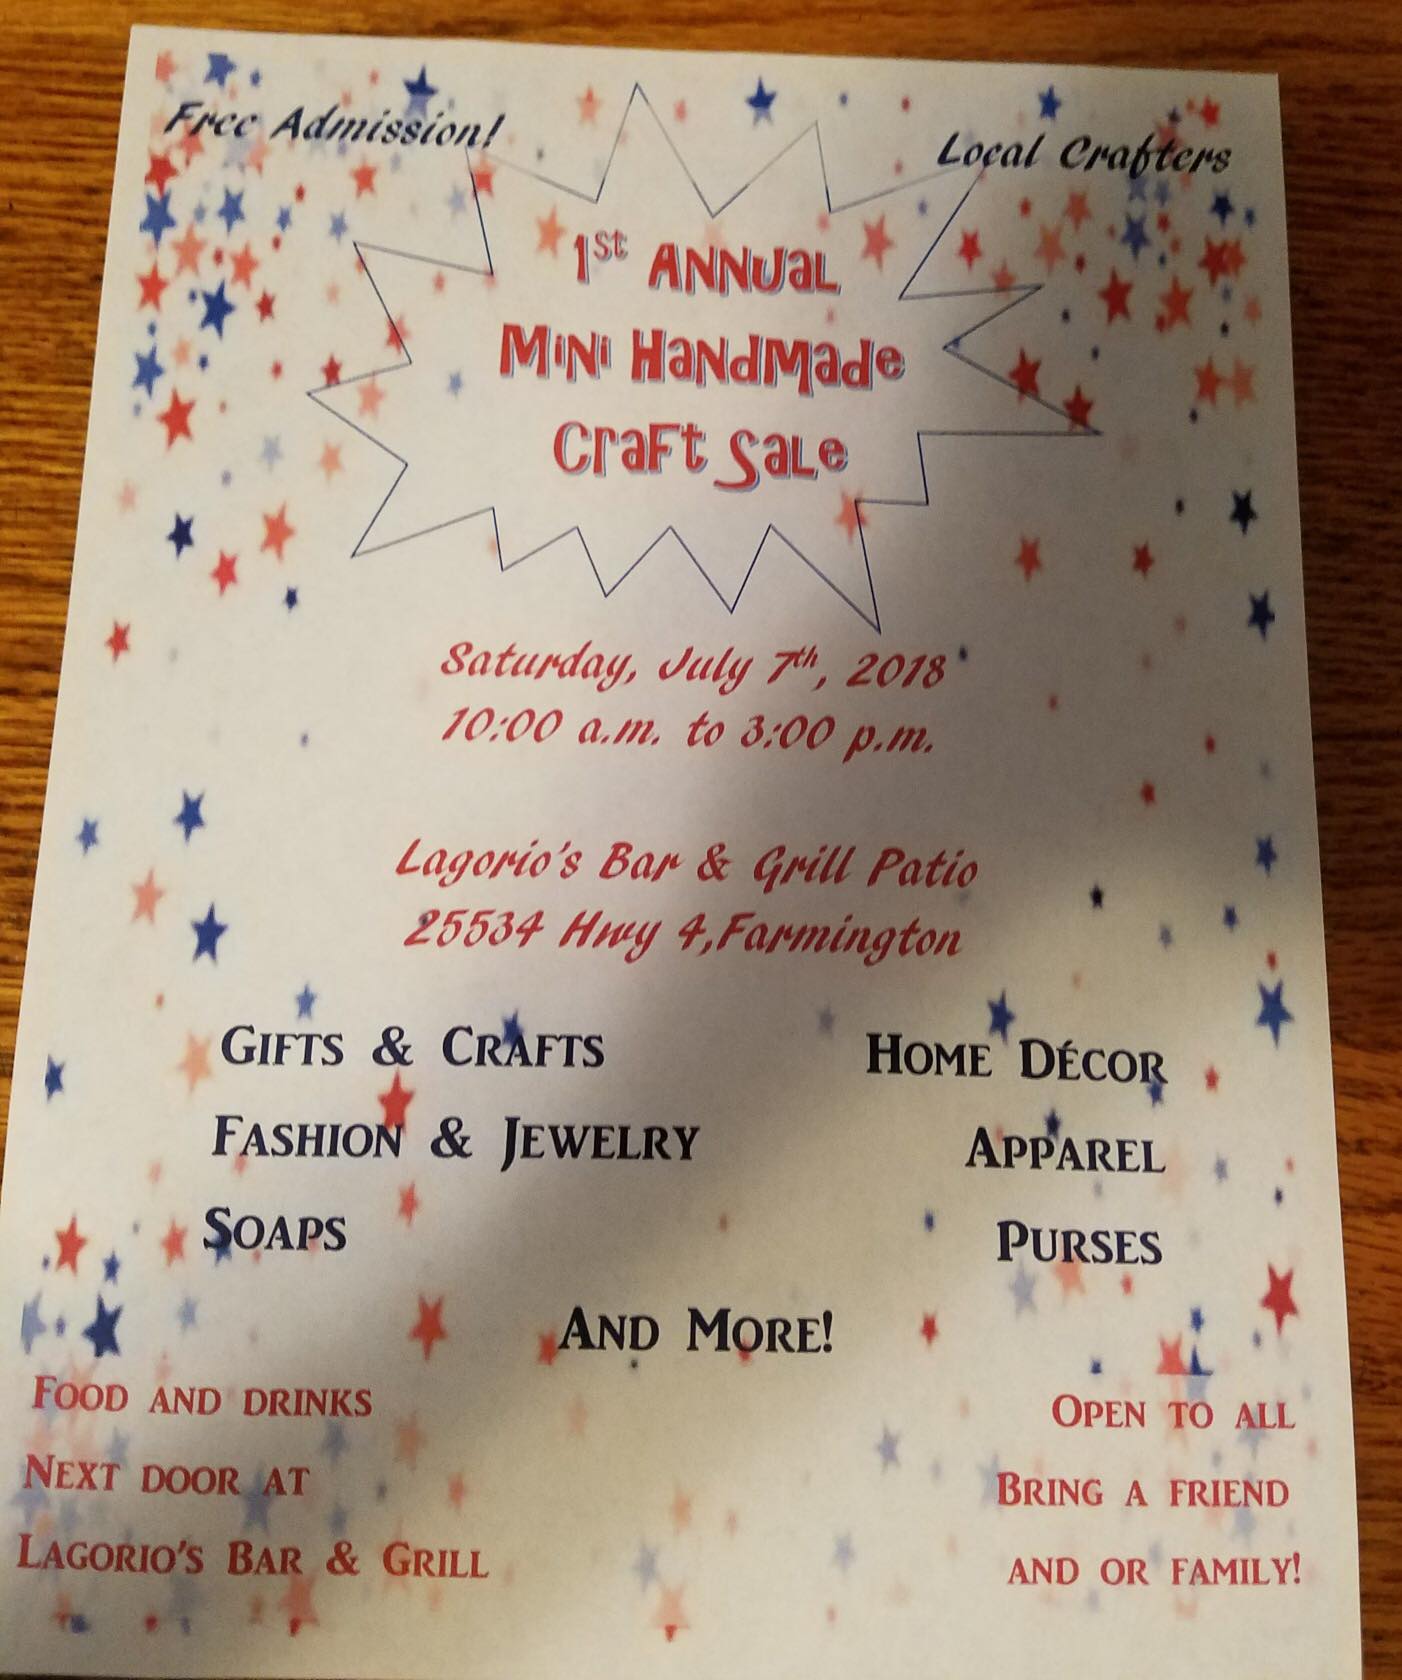 Free Admission!
Local Crafters
1st Annual
Mini Handmade
Craft Sale
Saturday, July 7th, 2018
10:00 a.m. to 3:00 p.m.
Lagorio's Bar & Grill Patio
25534 Hwy 4,Farmington
Gifts & Crafts
Home Décor
Fashion & Jewelry
Apparel
Soaps
Purses
And More!
Food and drinks
Next door at
Lagorio's Bar & Grill
Open to all
Bring a friend
and or family!